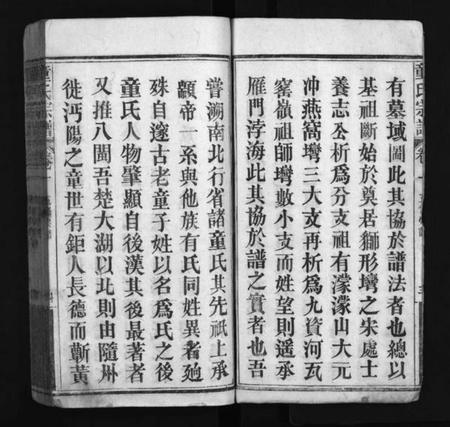 有墓域圖此其協於譜法者也總以
基祖斷始於奠居獅形塆之朱處士
養志公析爲分支祖有濛濛山大元
冲燕窩塆三大支再析爲九資河瓦
窰嶺祖師塆數小支而姓望則遥承
雁門浡海此其協於譜之實者也吾
嘗溯南北行省諸童氏其先祇上承
顓帝一系與他族有氏同姓異者廻
殊自邃古老童子姓以名爲氏之後
童氏人物肇顯自後漢其後最著者
又推八閩吾楚大湖以北則由隨州
徙沔陽之童世有鉅人長德而蘄黃
童氏宗譜
卷